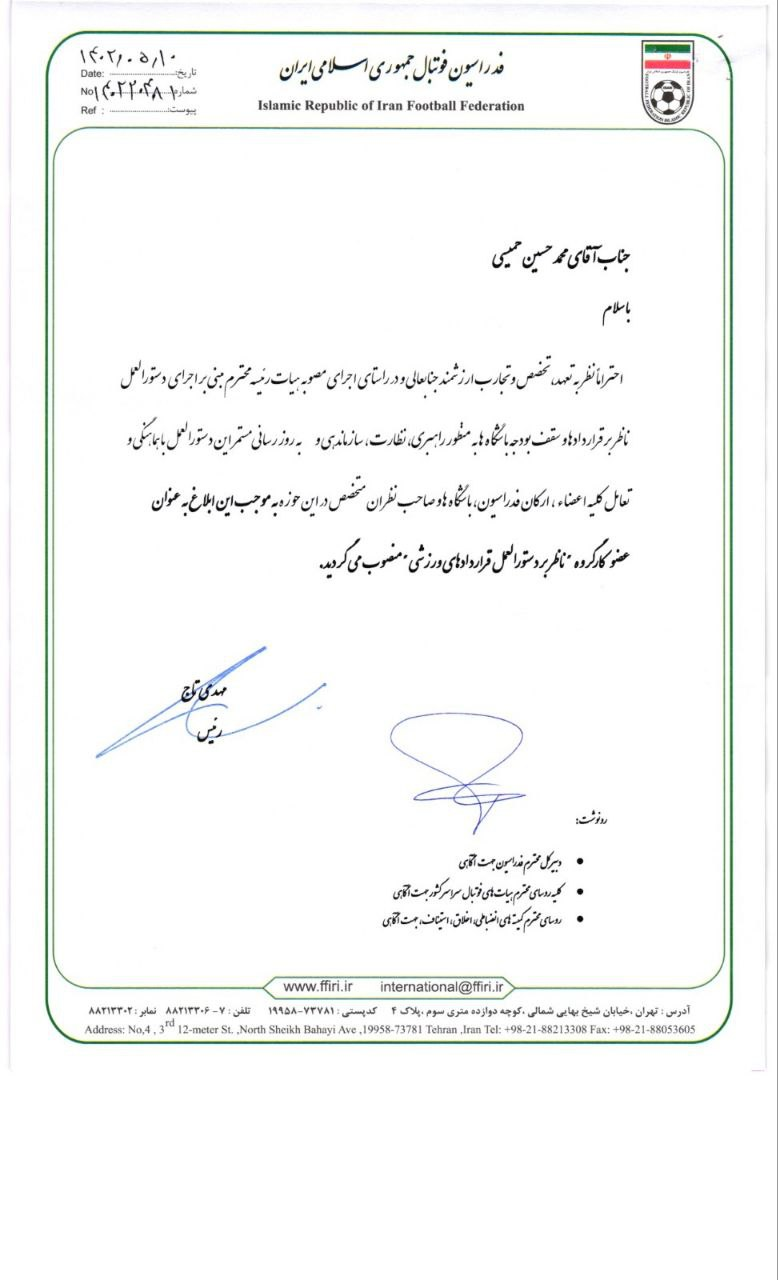 فدراسیون فوتبال جمهوری اسلامی ایران
Islamic Republic of Iran Football Federation
تاریخ: ۱۴۰۲,۰۵,۱۰ Date:
شماره: ۱۴۰۲۲۰۴۸۱ No
پیوست: Ref :
FOOTBALL FEDERATION ISLAMIC REPUBLIC OF IRAN
جناب آقای محمد حسین حمیسی
باسلام
احتراماً نظر به تعهد، تخصص و تجارب ارزشمند جنابعالی و در راستای اجرای مصوبه هیات رئیسه محترم مبنی بر اجرای دستورالعمل
ناظر بر قراردادها و سقف بودجه باشگاه ها به منظور راهبری، نظارت، سازماندهی و به روز رسانی مستمر این دستورالعمل با هماهنگی و
تعامل کلیه اعضاء ، ارکان فدراسیون، باشگاه ها و صاحب نظران متخصص در این حوزه به موجب این ابلاغ به عنوان
عضو کارگروه "ناظر بر دستورالعمل قراردادهای ورزشی" منصوب می گردید.
مهدی تاج
رئیس
رونوشت:
• دبیرکل محترم فدراسیون جهت آگاهی
• کلیه روسای محترم هیات های فوتبال سراسر کشور جهت آگاهی
• روسای محترم کمیته های انضباطی، اخلاق، استیناف، جهت آگاهی
www.ffiri.ir international@ffiri.ir
آدرس : تهران ،خیابان شیخ بهایی شمالی ،کوچه دوازده متری سوم ،پلاک ۴ کدپستی : ۷۳۷۸۱-۱۹۹۵۸ تلفن : ۷ - ۸۸۲۱۳۳۰۶ نمابر : ۸۸۲۱۳۳۰۲
Address: No,4 , 3rd 12-meter St. ,North Sheikh Bahayi Ave ,19958-73781 Tehran ,Iran Tel: +98-21-88213308 Fax: +98-21-88053605